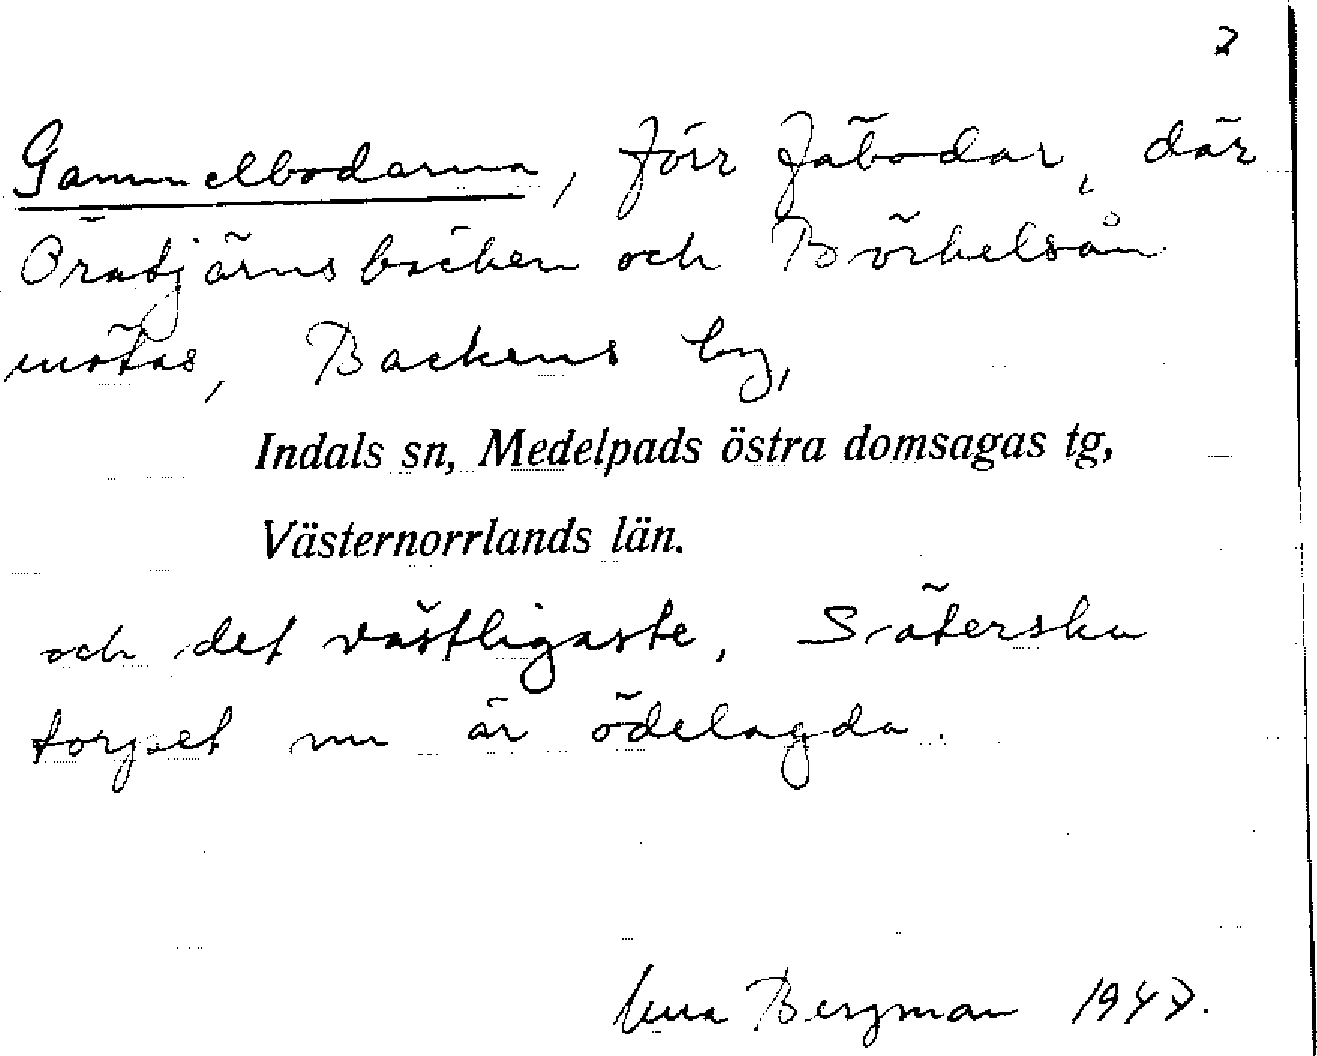 2
Gammelbodarna, förr fäbodar, där
Öratjärnsbäcken och Börhelsån
mötas, Backens by,
Indals sn, Medelpads östra domsagas tg,
Västernorrlands län.
och det västligaste, Säterska
torpet nu är ödelagda.
Bergman 1947.